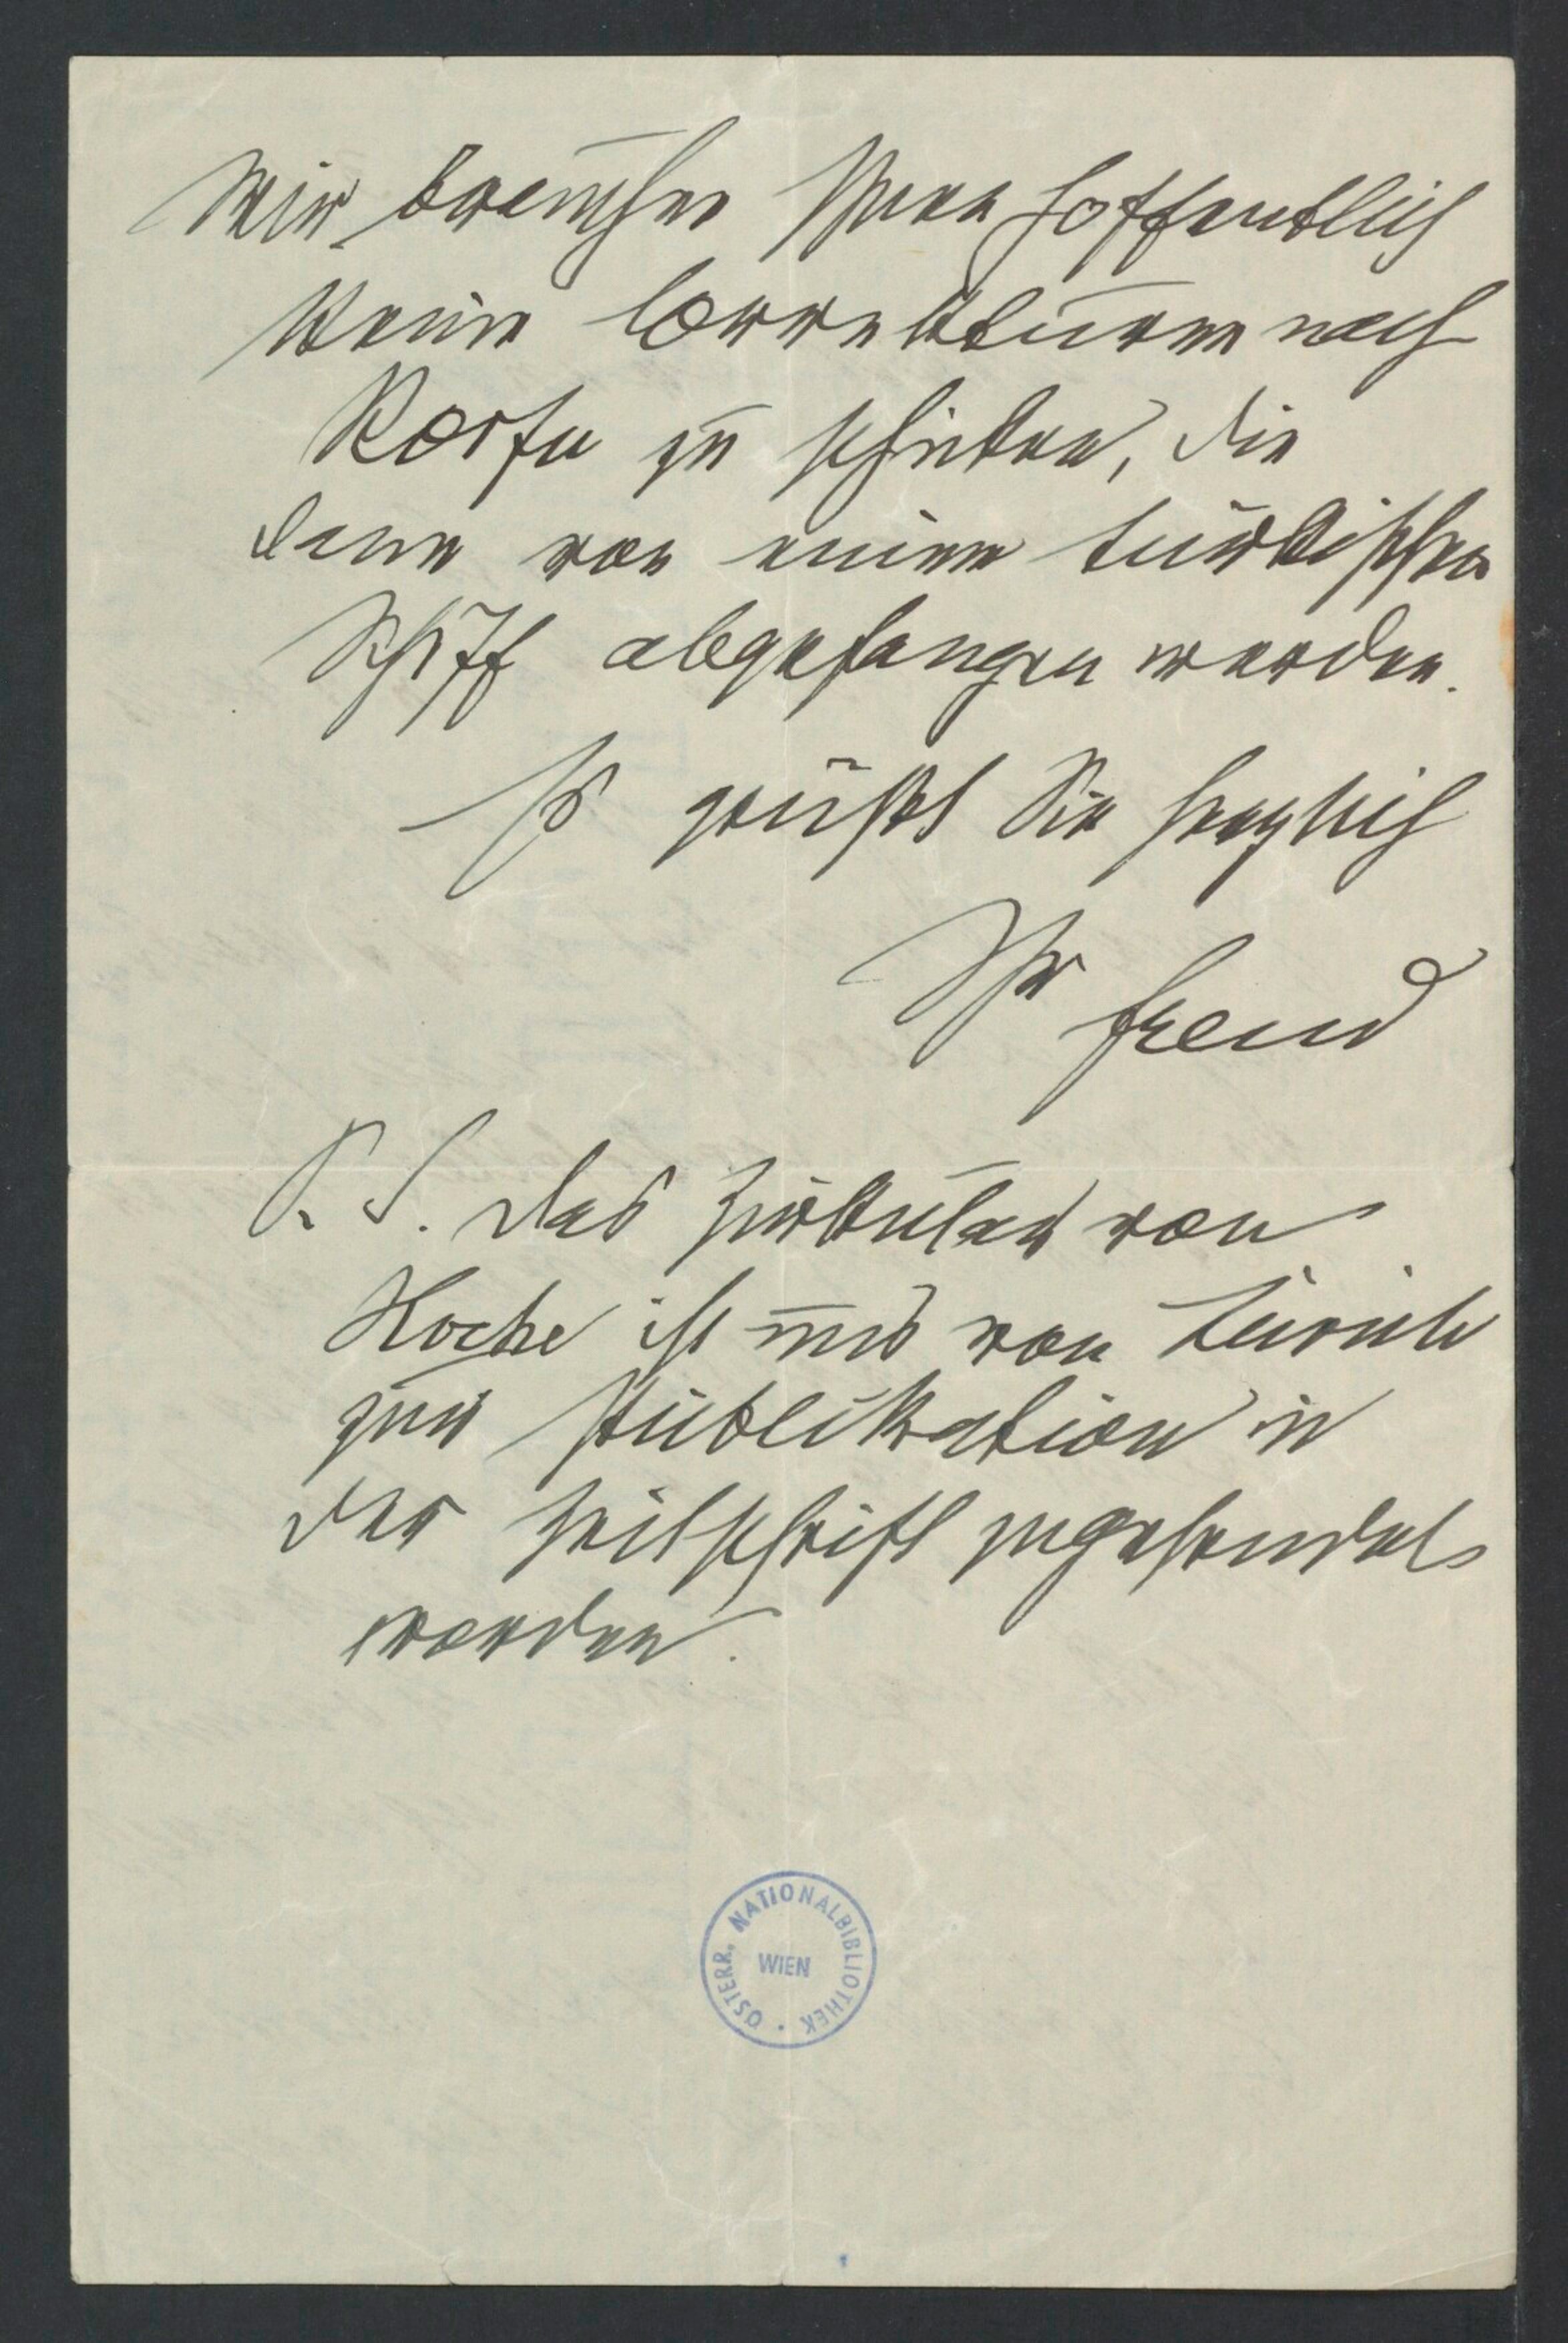 Wir brauchen Ihnen hoffentlich
keine Correkturen nach
Korfu zu schicken, die
dann von einem türkischen
Schiff abgefangen werden.
Es grüßt Sie herzlich
Ihr Freud
P. S. Das Zirkular von
Hoche ist uns von Zürich
zur Publikation in
der Zeitschrift zugesendet
worden.
ÖSTERR. NATIONALBIBLIOTHEK
WIEN